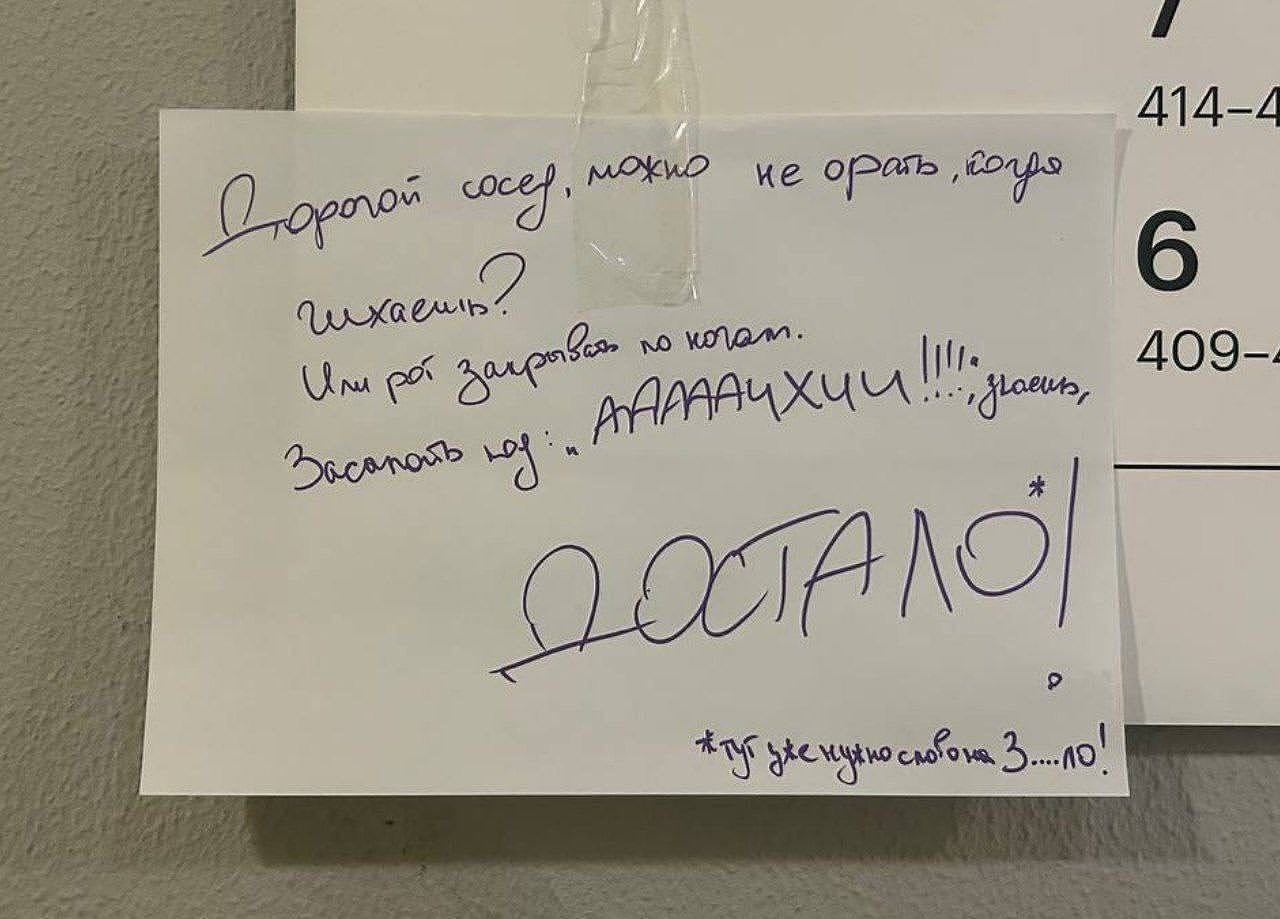 7
414–4
6
409–4
Дорогой сосед, можно не орать, когда
чихаешь?
Или рот закрывать по ночам.
Засыпать под: „ААААAЧХИИ!!!!", знаешь,
ДОСТАЛО*!
*тут уже нужно слово на З....ЛО!